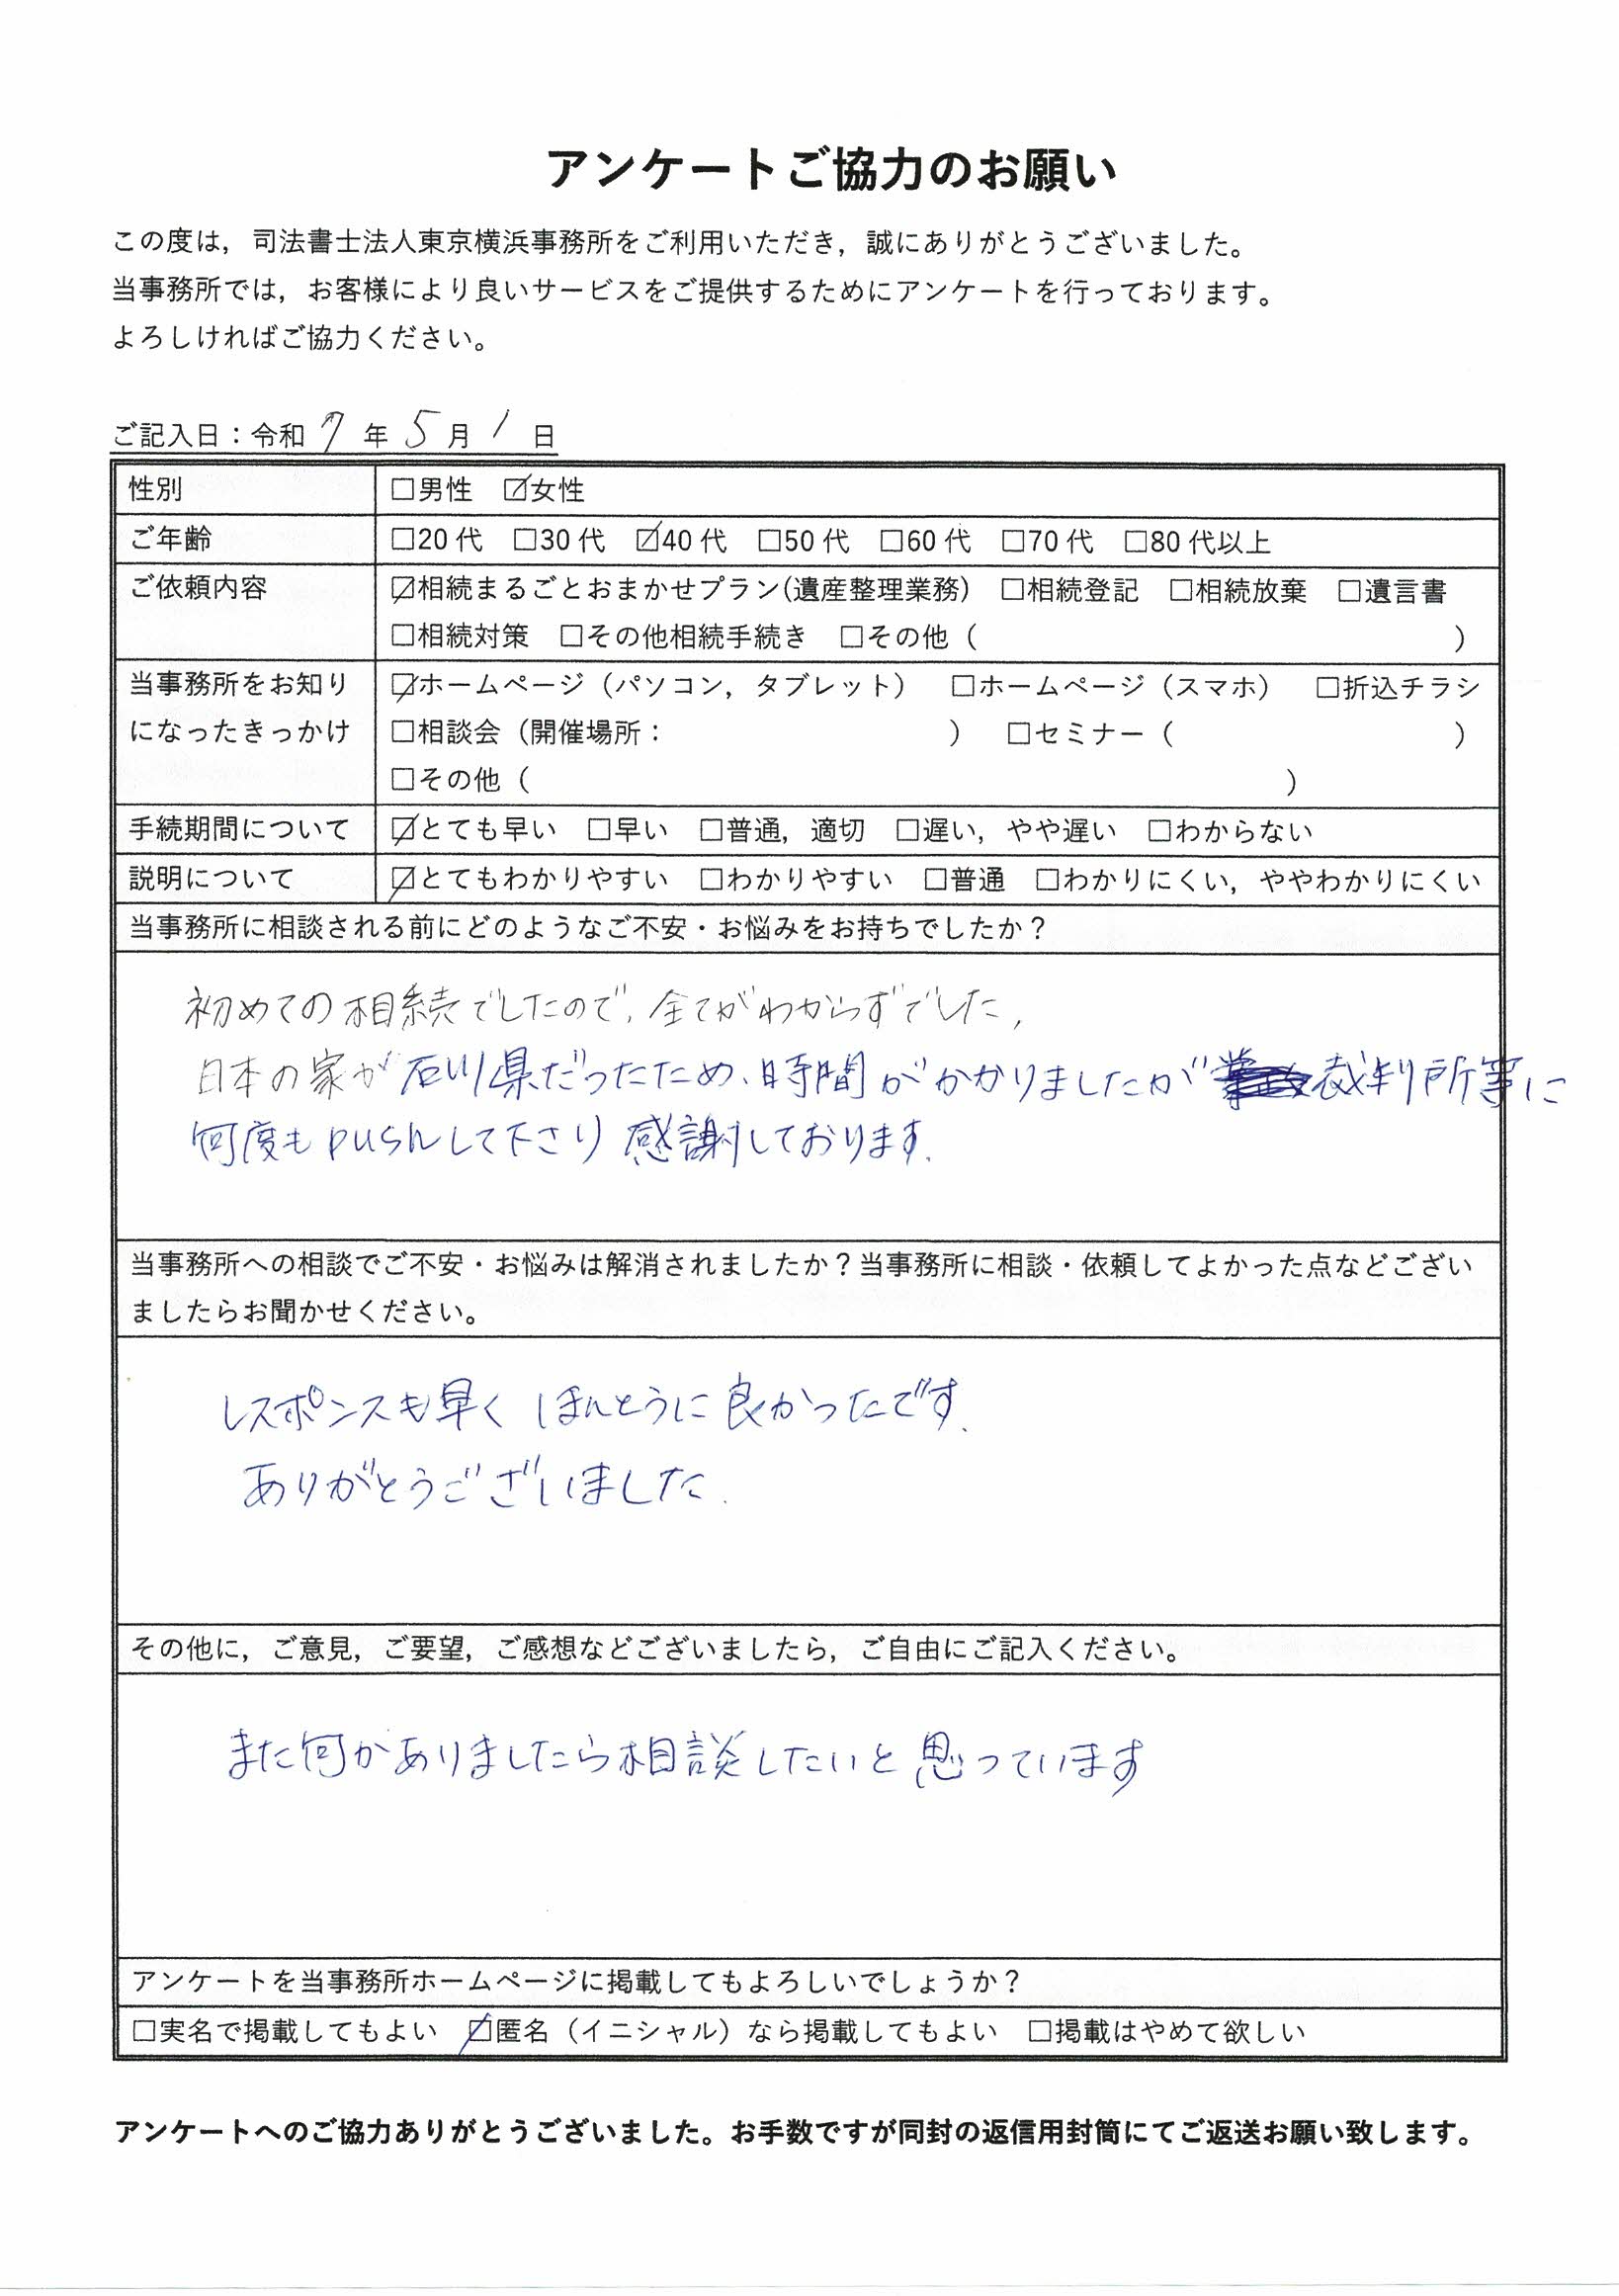 アンケートご協力のお願い
この度は，司法書士法人東京横浜事務所をご利用いただき，誠にありがとうございました。
当事務所では，お客様により良いサービスをご提供するためにアンケートを行っております。
よろしければご協力ください。
ご記入日：令和 7 年 5 月 1 日
性別 □男性 ☑女性
ご年齢 □20代 □30代 ☑40代 □50代 □60代 □70代 □80代以上
ご依頼内容 ☑相続まるごとおまかせプラン(遺産整理業務) □相続登記 □相続放棄 □遺言書
□相続対策 □その他相続手続き □その他（ ）
当事務所をお知り ☑ホームページ（パソコン，タブレット） □ホームページ（スマホ） □折込チラシ
になったきっかけ □相談会（開催場所： ） □セミナー（ ）
□その他（ ）
手続期間について ☑とても早い □早い □普通，適切 □遅い，やや遅い □わからない
説明について ☑とてもわかりやすい □わかりやすい □普通 □わかりにくい，ややわかりにくい
当事務所に相談される前にどのようなご不安・お悩みをお持ちでしたか？
初めての相続でしたので、全てがわからずでした。
日本の家が石川県だったため、時間がかかりましたが 裁判所等に
何度もpushして下さり感謝しております。
当事務所への相談でご不安・お悩みは解消されましたか？当事務所に相談・依頼してよかった点などござい
ましたらお聞かせください。
レスポンスも早く ほんとうに良かったです。
ありがとうございました。
その他に，ご意見，ご要望，ご感想などございましたら，ご自由にご記入ください。
また何かありましたら相談したいと思っています
アンケートを当事務所ホームページに掲載してもよろしいでしょうか？
□実名で掲載してもよい ☑匿名（イニシャル）なら掲載してもよい □掲載はやめて欲しい
アンケートへのご協力ありがとうございました。お手数ですが同封の返信用封筒にてご返送お願い致します。